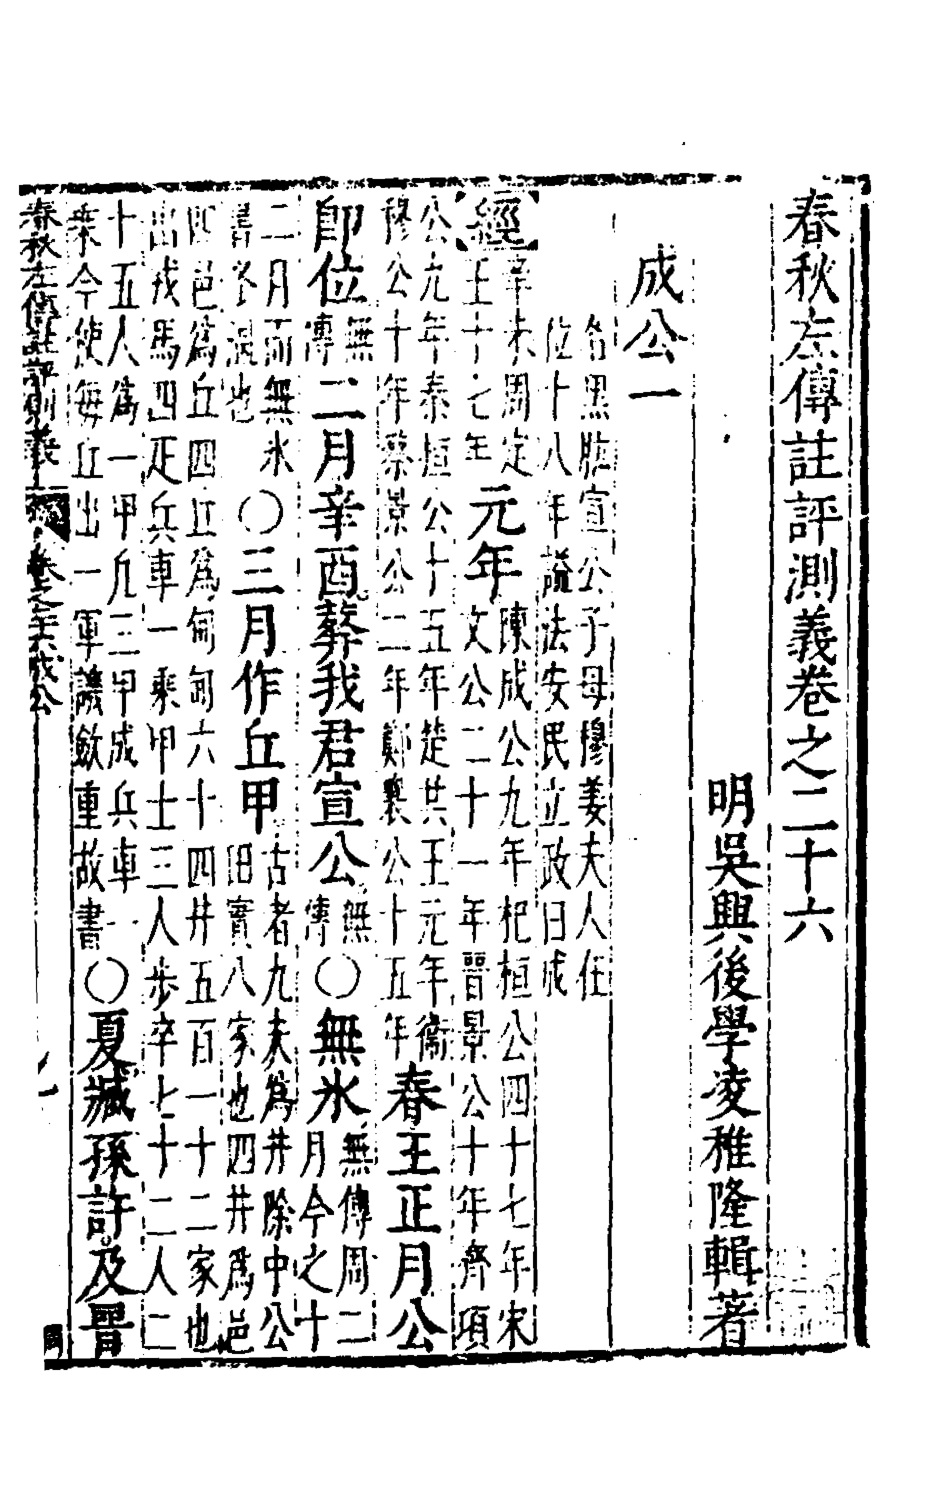 春秋左傳註評測義卷之二十六
明吳興後學凌稚隆輯著
成公一
名黑肱宣公子母穆姜夫人在
位十八年謚法安民立政曰成
經
辛未周定
王十七年
元年
陳成公九年杞桓公四十七年宋
文公二十一年晉景公十年齊項
公九年秦桓公十五年楚共王元年衞
穆公十年蔡景公二年鄭襄公十五年
春王正月公
即位
無
傳
二月辛酉葬我君宣公
無
傳
〇無氷
無傳周二
月今之十
二月而無氷
書冬溫也
〇三月作丘甲
古者九夫爲井除中公
田實八家也四井爲邑
四邑爲丘四丘爲甸甸六十四井五百一十二家也
出戎馬四疋兵車一乘甲士三人步卒七十二人二
十五人爲一甲凡三甲成兵車一
乘今使每丘出一軍譏斂重故書
〇夏臧孫許及晉
春秋左傳註評測義
卷之二十六成公
一